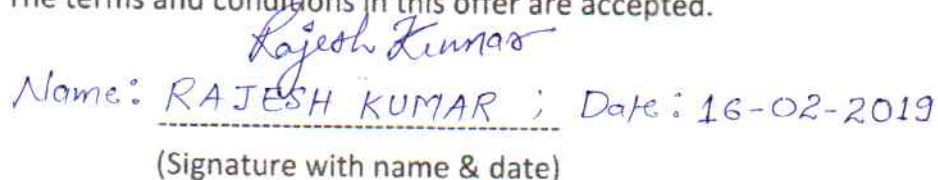 The terms and conditions in this offer are accepted.
Rajesh Kumar
Name: RAJESH KUMAR ; Date: 16-02-2019
(Signature with name & date)